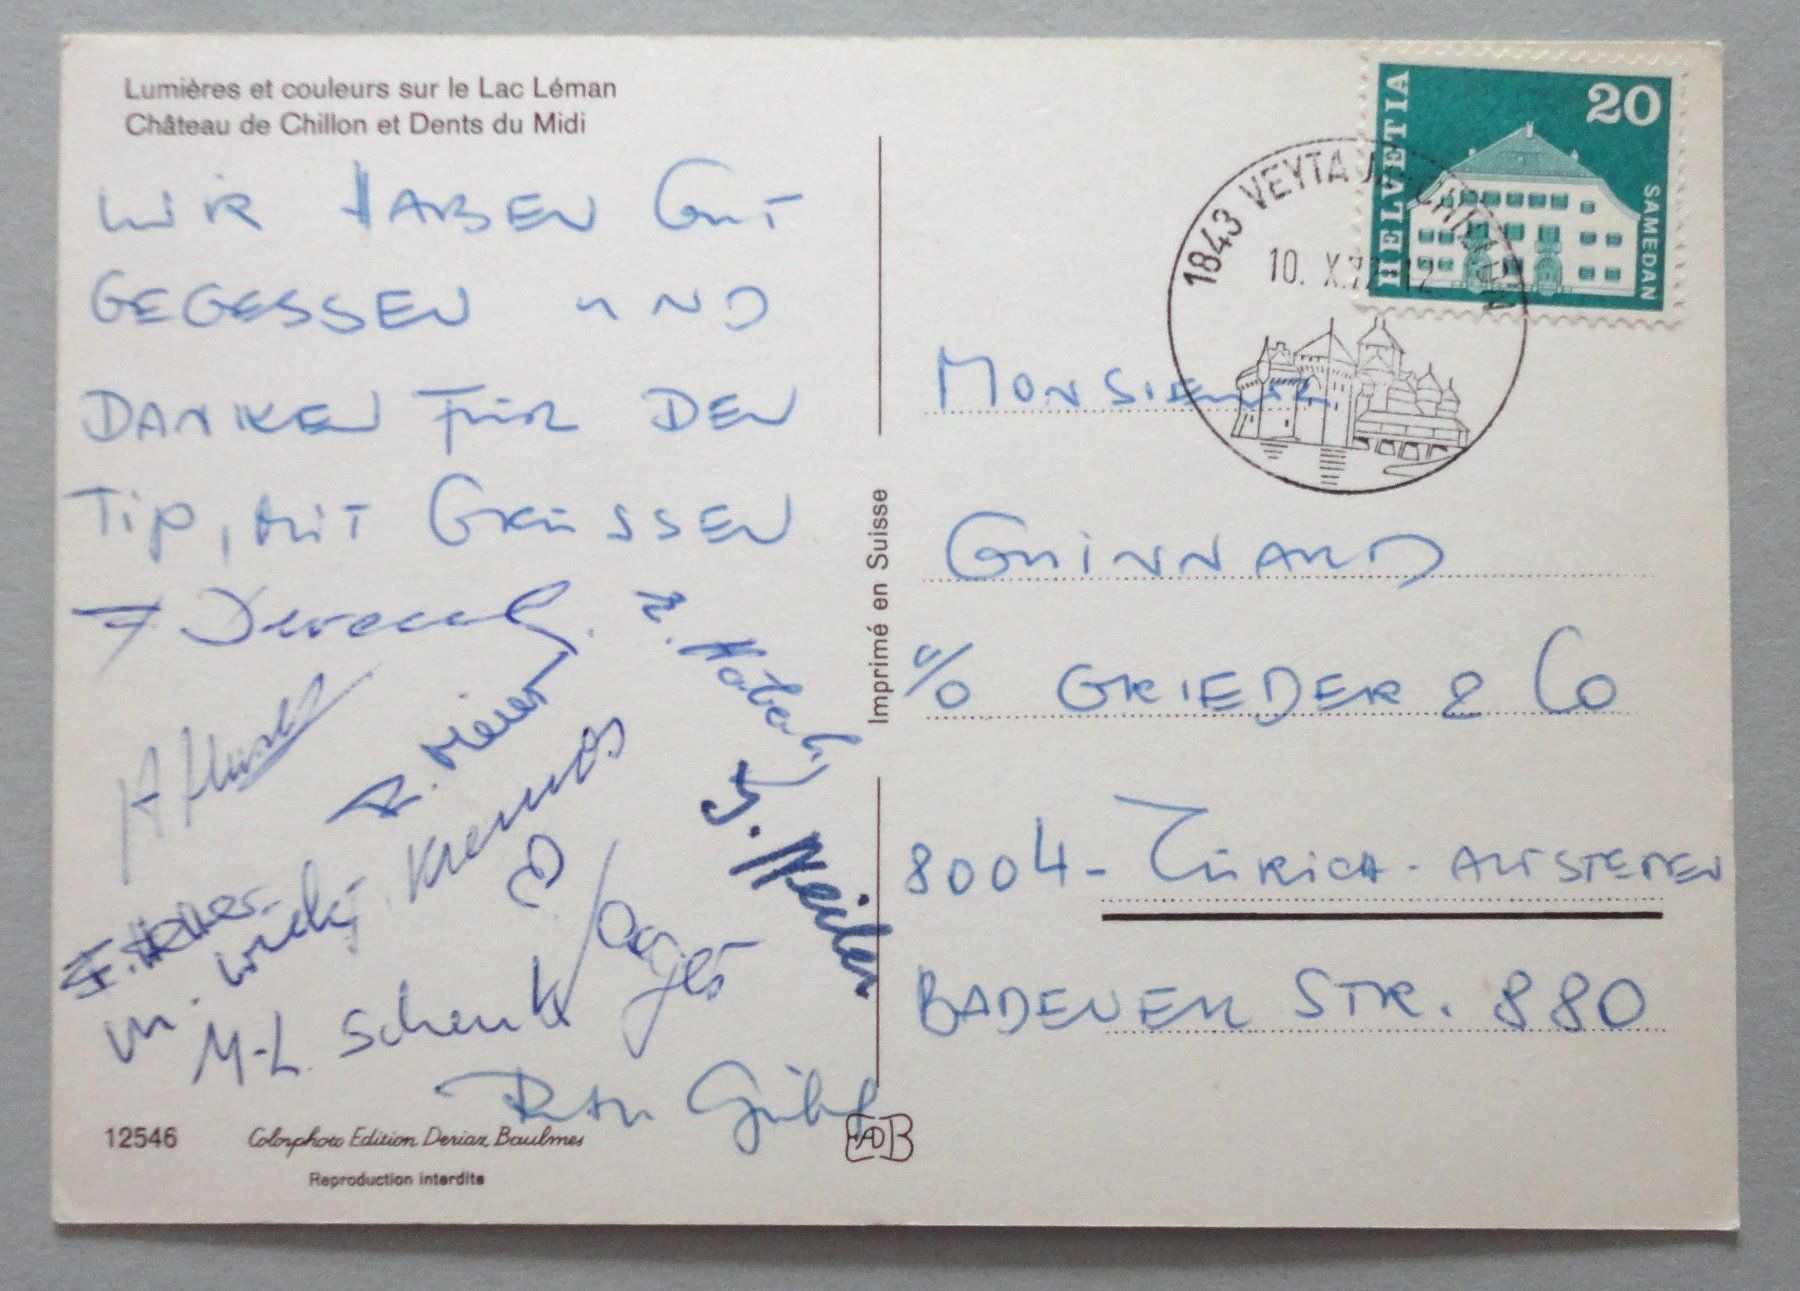 Lumières et couleurs sur le Lac Léman
Château de Chillon et Dents du Midi
WIR HABEN GUT
GEGESSEN UND
DANKEN FÜR DEN
TIP, MIT GRÜSSEN
A. Meier
Kremos
M-L. Schenk
Ruth
12546
Colorphoto Edition Deriaz Baulmes
Reproduction interdite
Imprimé en Suisse
EADB
HELVETIA
20
SAMEDAN
1843 VEYTAUX-CHILLON
10. X. 12
MONSIEUR
GUINNARD
c/o GRIEDER & Co
8004 - ZÜRICH - ALTSTETTEN
BADENER STR. 880